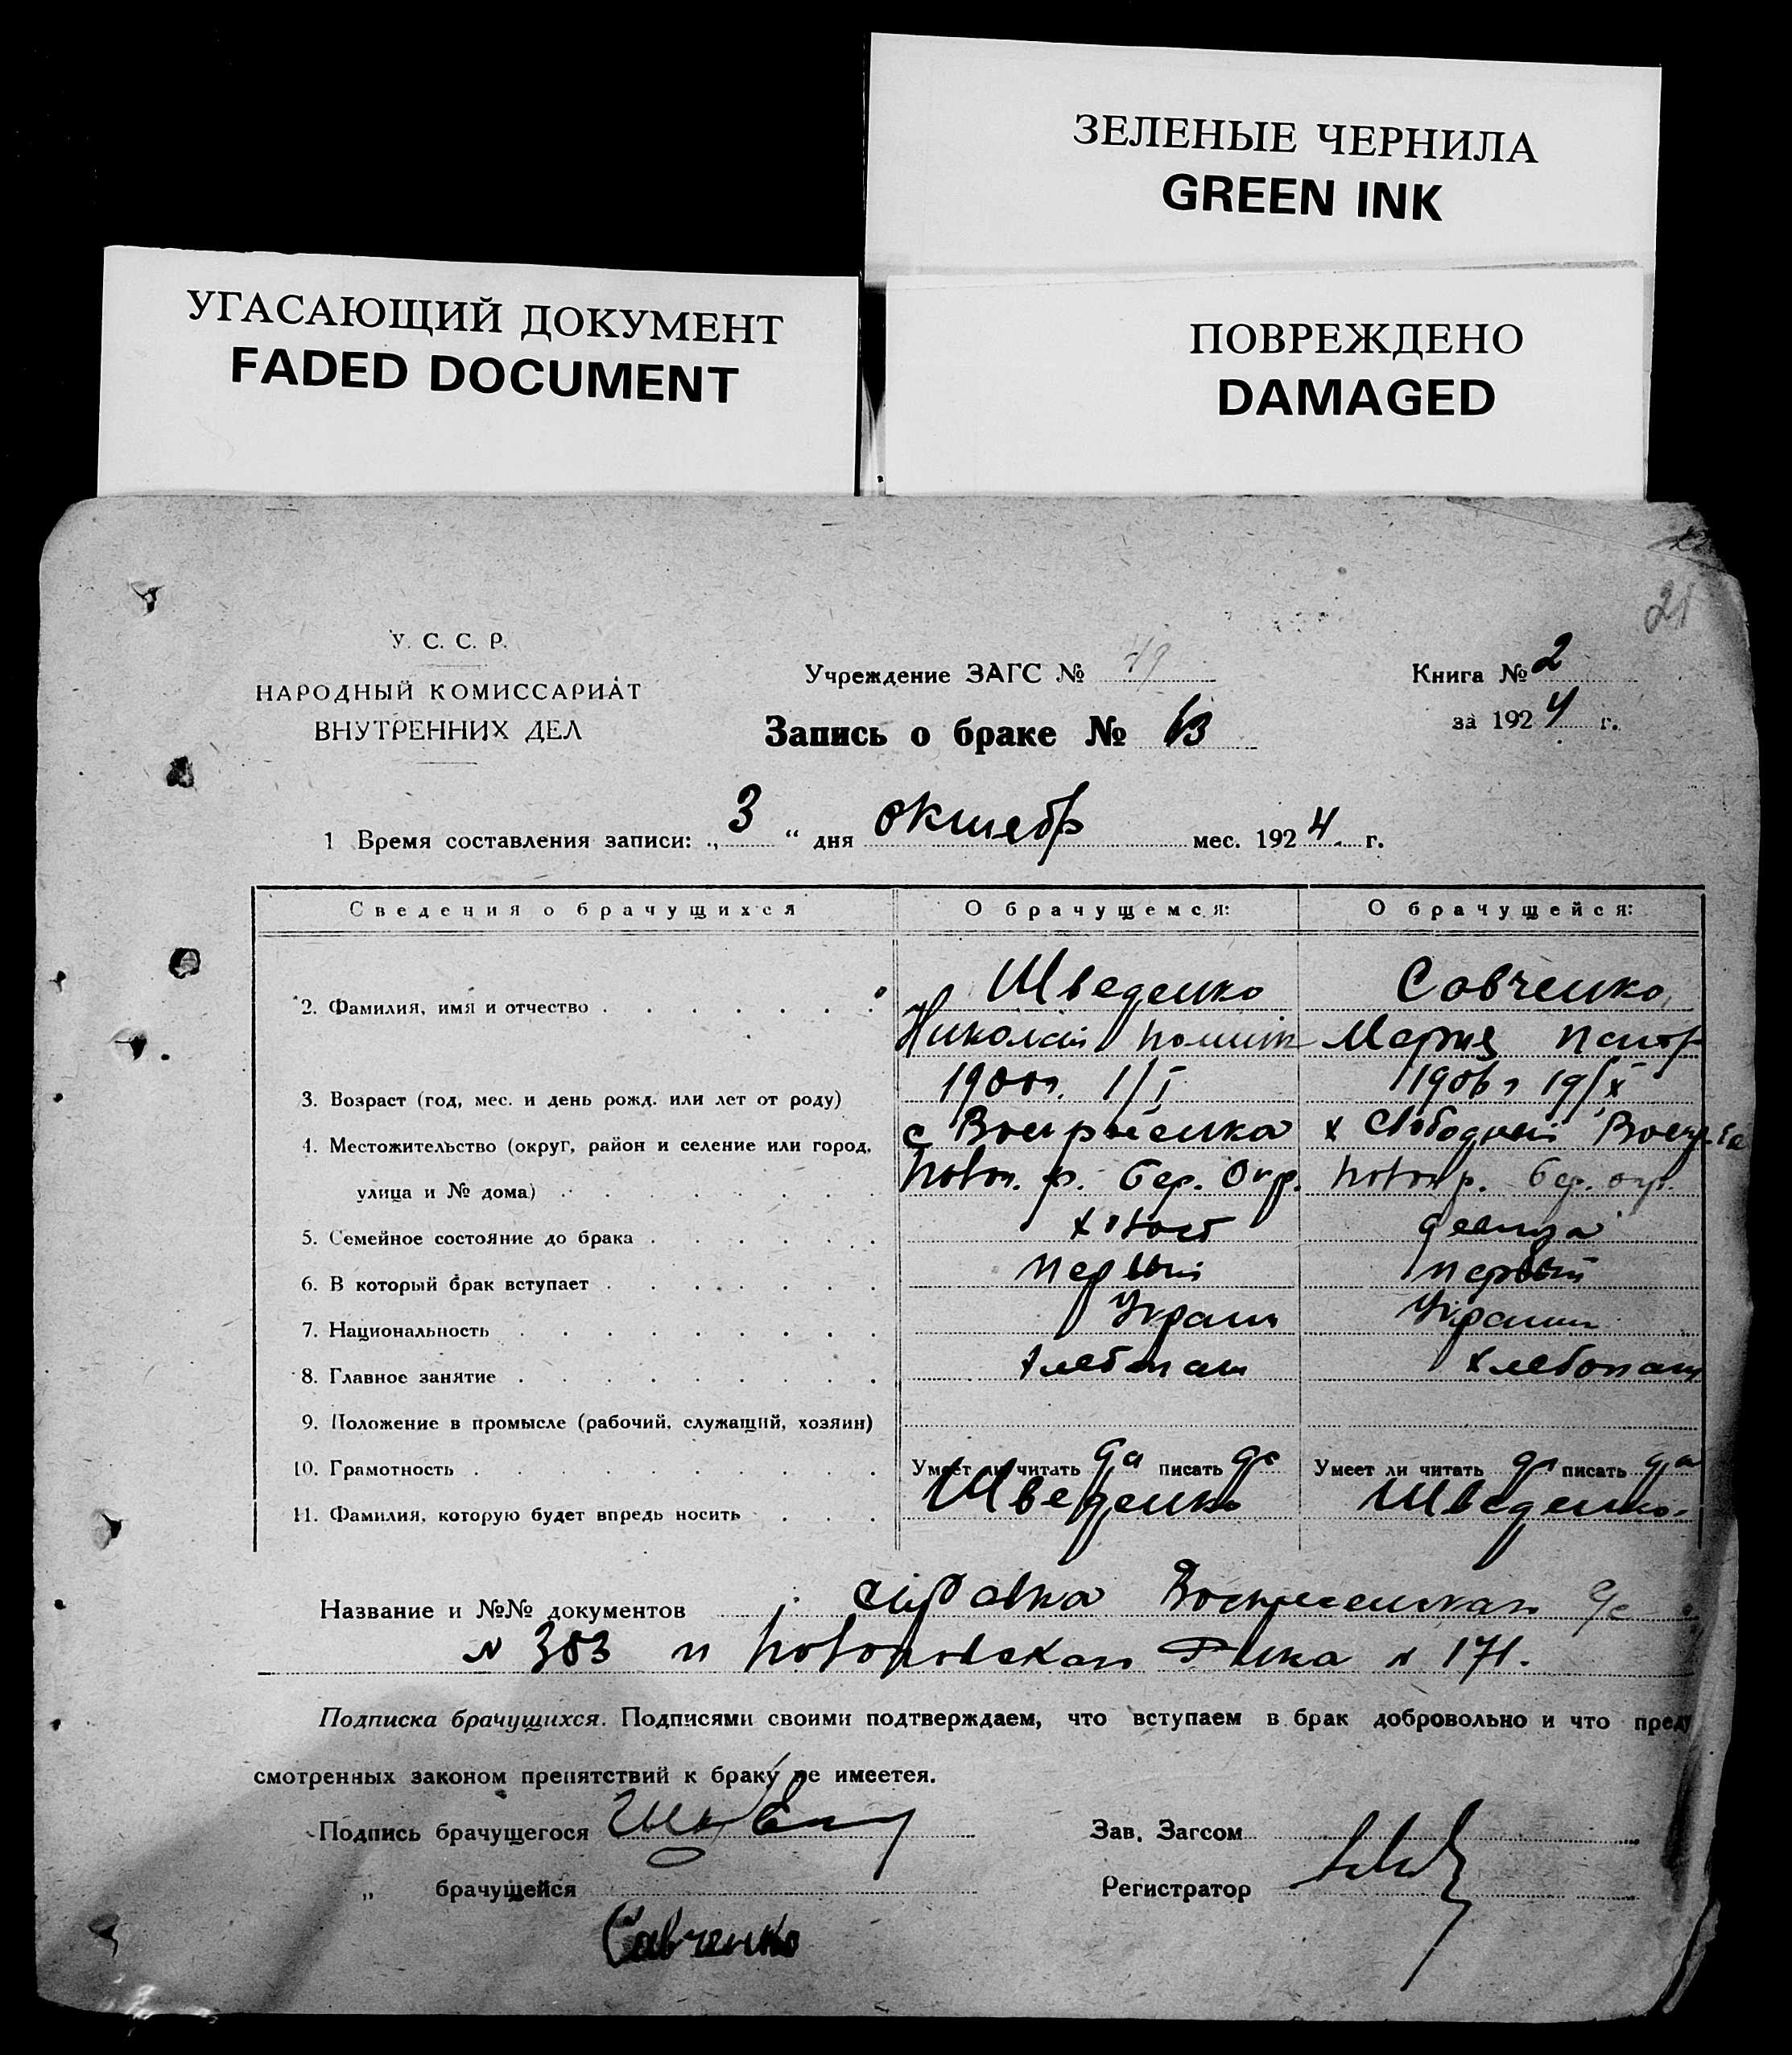 ЗЕЛЕНЫЕ ЧЕРНИЛА
GREEN INK
УГАСАЮЩИЙ ДОКУМЕНТ
FADED DOCUMENT
ПОВРЕЖДЕНО
DAMAGED
21
У. С. С. Р.
НАРОДНЫЙ КОМИССАРИАТ
ВНУТРЕННИХ ДЕЛ
Учреждение ЗАГС № 49
Запись о браке № 13
Книга № 2
за 1924 г.
1 Время составления записи: „3“ дня октябр мес. 1924 г.
Сведения о брачущихся О брачущемся: О брачущейся:
2. Фамилия, имя и отчество Шведенко Савченко
Николай Мария
3. Возраст (год, мес. и день рожд. или лет от роду) 1900г. 1/I 1906г 19/X
4. Местожительство (округ, район и селение или город, с Воскрысенка х Свободный
улица и № дома) Новоп. р. Бер. Окр. Новоп р. Бер. окр.
5. Семейное состояние до брака холост девица
6. В который брак вступает первый первый
7. Национальность Украин Украин
8. Главное занятие хлебопаш хлебопаш
9. Положение в промысле (рабочий, служащий, хозяин)
10. Грамотность Умеет ли читать да писать да Умеет ли читать да писать да
11. Фамилия, которую будет впредь носить Шведенко Шведенко
Название и №№ документов справка Воскресенская
N 303 и Новоповская Рика N 171.
Подписка брачущихся. Подписями своими подтверждаем, что вступаем в брак добровольно и что преду
смотренных законом препятствий к браку не имеется.
Подпись брачущегося Зав. Загсом
„ брачущейся Регистратор
Савченко